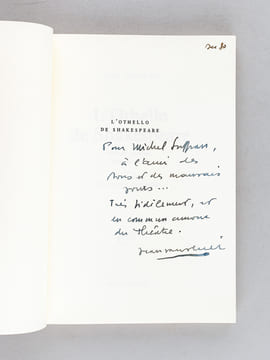 Dec 80
L'OTHELLO
DE SHAKESPEARE
Pour Michel Suffran,
à l'ami des
bons et des mauvais
jours...
Très fidèlement, et
en commun amour
du Théâtre.